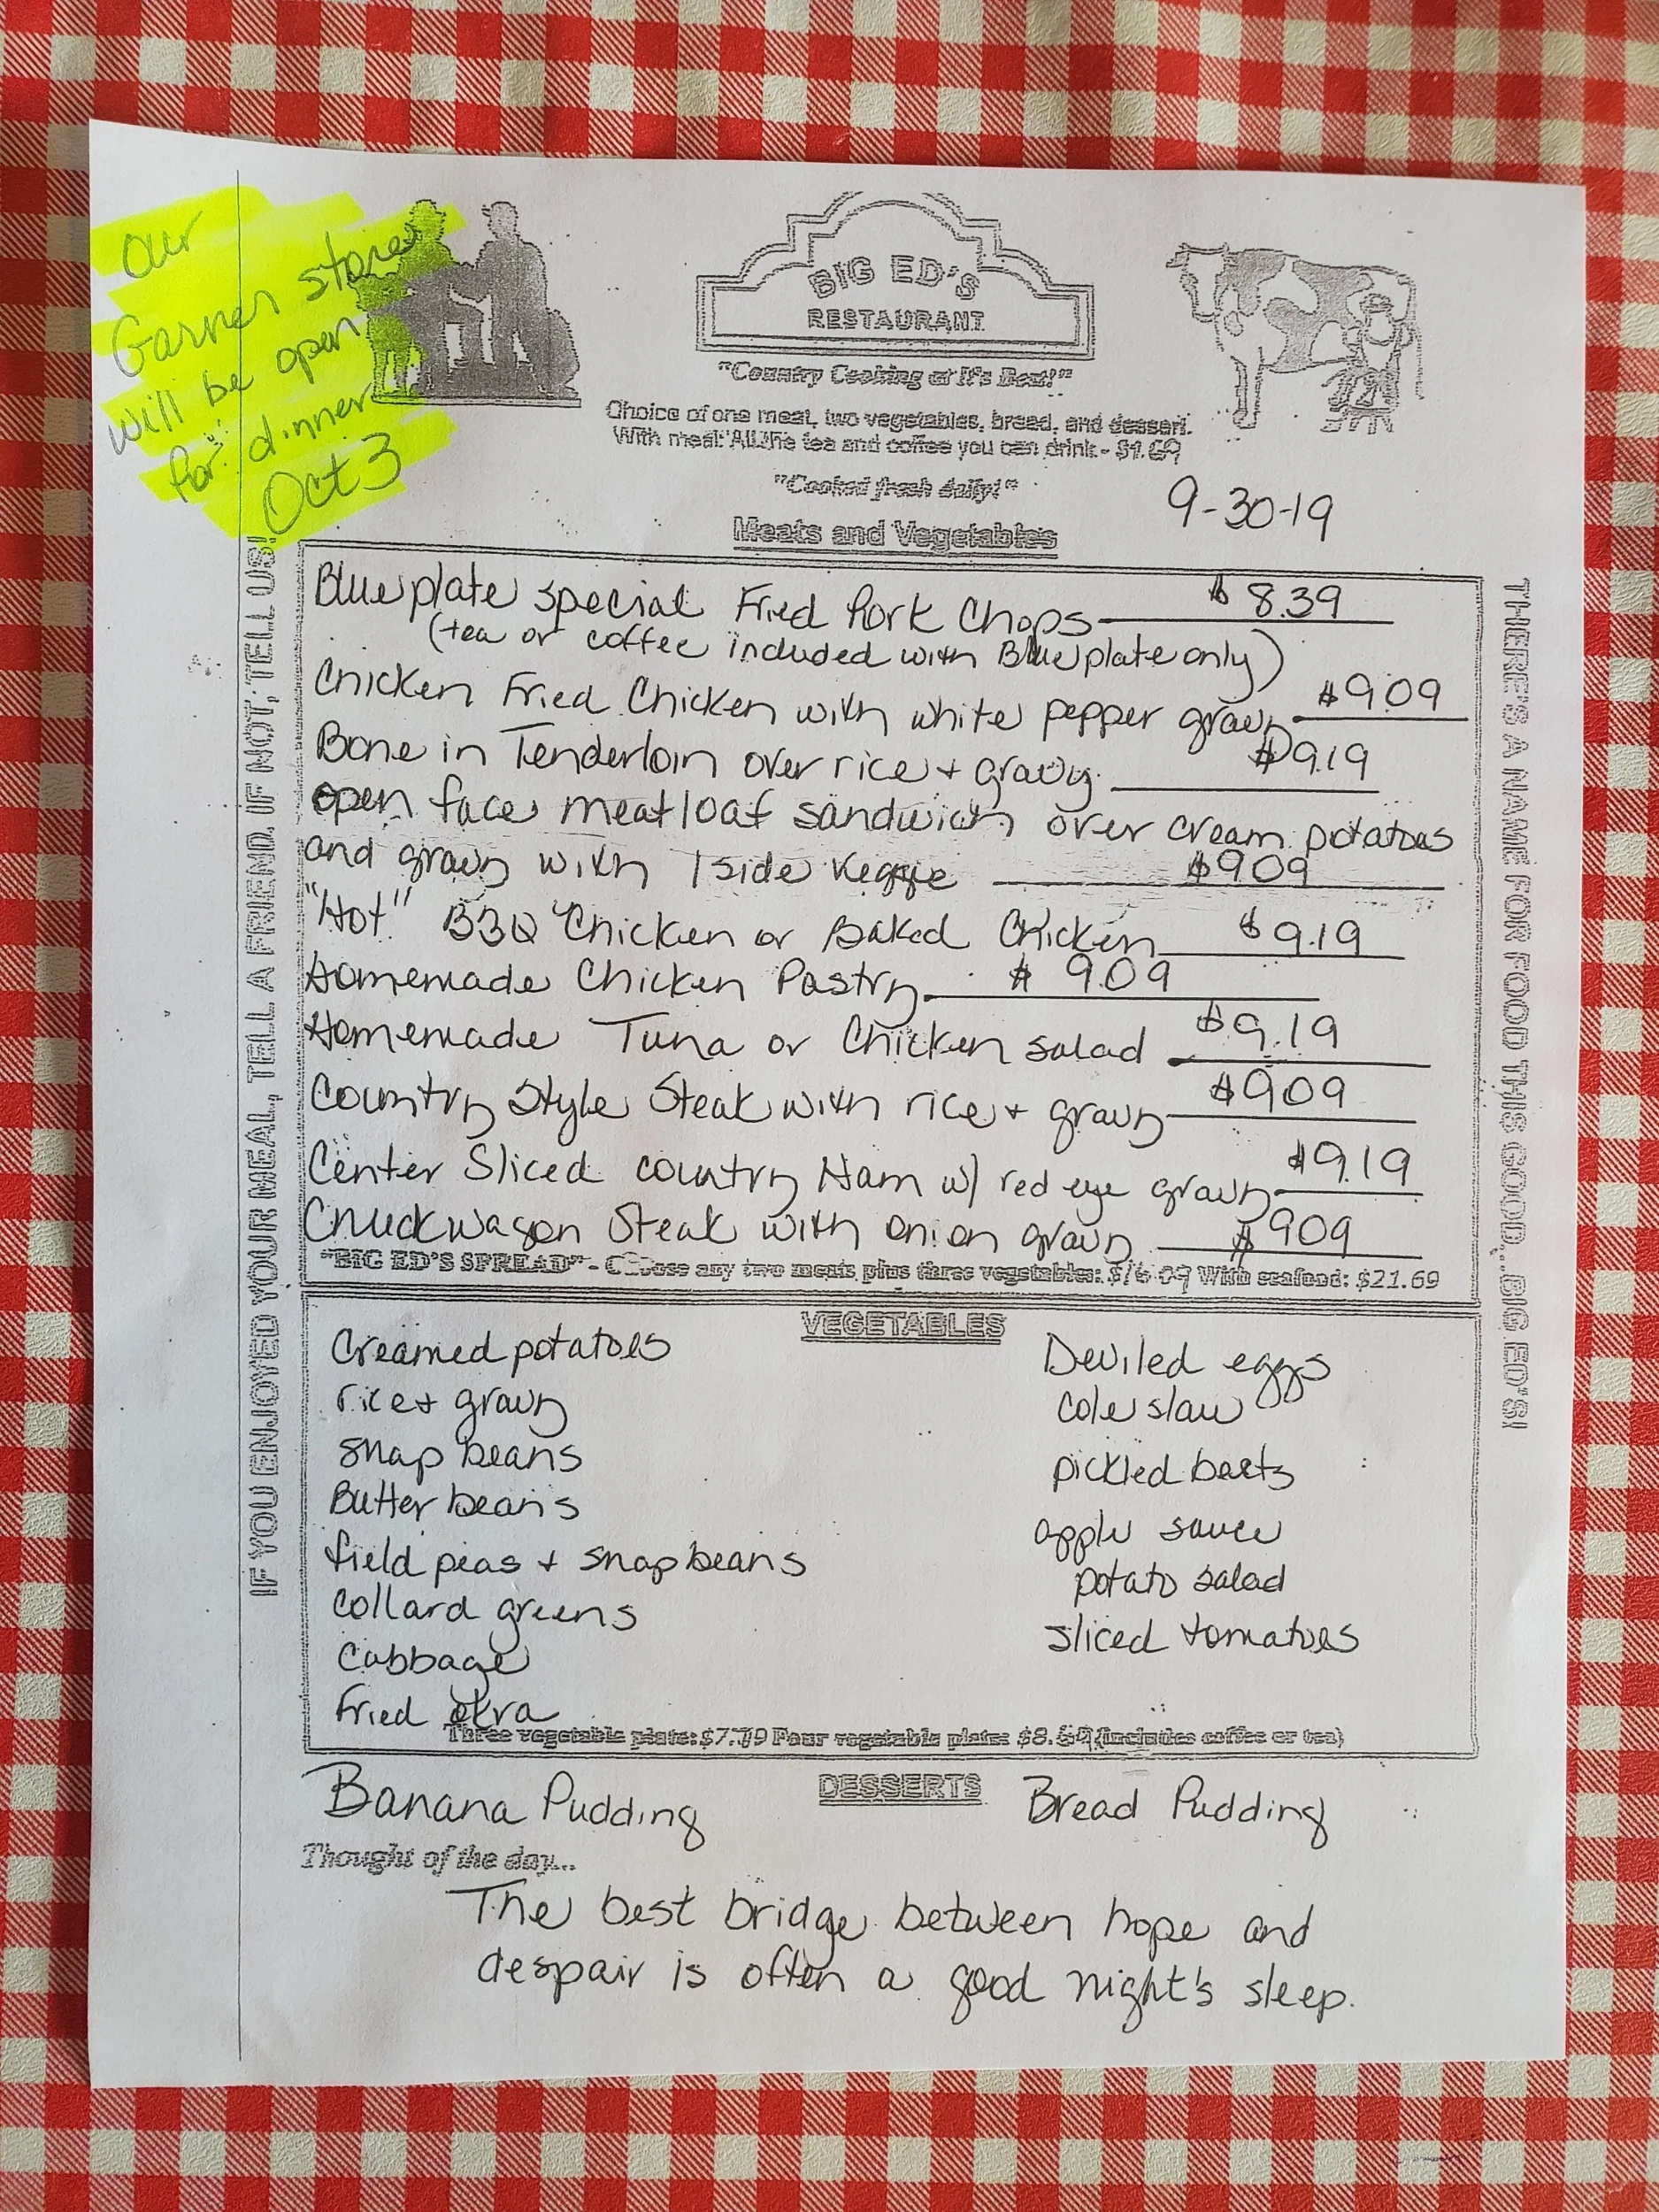 Our
Garner store
will be open
for dinner
Oct 3
BIG ED'S
RESTAURANT
"Country Cooking at It's Best!"
Choice of one meat, two vegetables, bread, and dessert.
With meal: All the tea and coffee you can drink - $1.69
"Cooked fresh daily!"
9-30-19
Meats and Vegetables
IF YOU ENJOYED YOUR MEAL, TELL A FRIEND. IF NOT, TELL US!
Blueplate special Fried Pork Chops $8.39
(tea or coffee included with Blueplate only)
Chicken Fried Chicken with white pepper gravy $9.09
Bone in Tenderloin over rice + gravy $9.19
open face meatloaf sandwich over cream potatoes
and gravy with 1 side veggie $9.09
"Hot" BBQ Chicken or Baked Chicken $9.19
Homemade Chicken Pastry $9.09
Homemade Tuna or Chicken salad $9.19
Country Style Steak with rice + gravy $9.09
Center Sliced country Ham w/ red eye gravy $9.19
Chuckwagon Steak with onion gravy $9.09
"BIG ED'S SPREAD" - Choose any two meats plus three vegetables: $16.09 With seafood: $21.69
THERE'S A NAME FOR FOOD THIS GOOD...BIG ED'S!
VEGETABLES
Creamed potatoes
rice + gravy
snap beans
Butter beans
field peas + snap beans
Collard greens
Cabbage
Fried okra
Deviled eggs
cole slaw
pickled beets
apple sauce
potato salad
sliced tomatoes
Three vegetable plate: $7.79 Four vegetable plate: (includes coffee or tea)
DESSERTS
Banana Pudding
Bread Pudding
Thought of the day...
The best bridge between hope and
despair is often a good night's sleep.